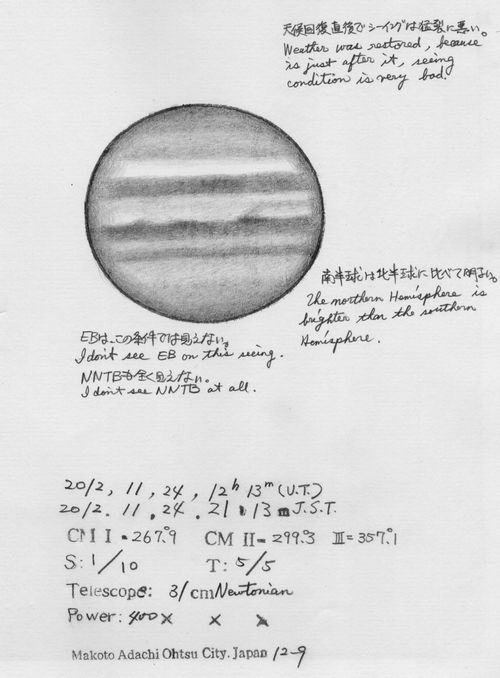 天候回復直後でシーイングは猛裂に悪い。
Weather was restored, because
is just after it, seeing
condition is very bad.
南半球は北半球に比べて明るい。
The northern Hemisphere is
brighter than the southern
Hemisphere.
EBは、この条件では見えない。
I don't see EB on this seeing.
NNTBも全く見えない。
I don't see NNTB at all.
2012, 11, 24, 12h 13m (U.T.)
2012. 11. 24. 21h 13m J.S.T.
CM I = 267.°9 CM II = 299.°3 III = 357.°1
S: 1/10 T: 5/5
Telescope: 31cm Newtonian
Power: 400× × ×
Makoto Adachi Ohtsu City. Japan 12-9